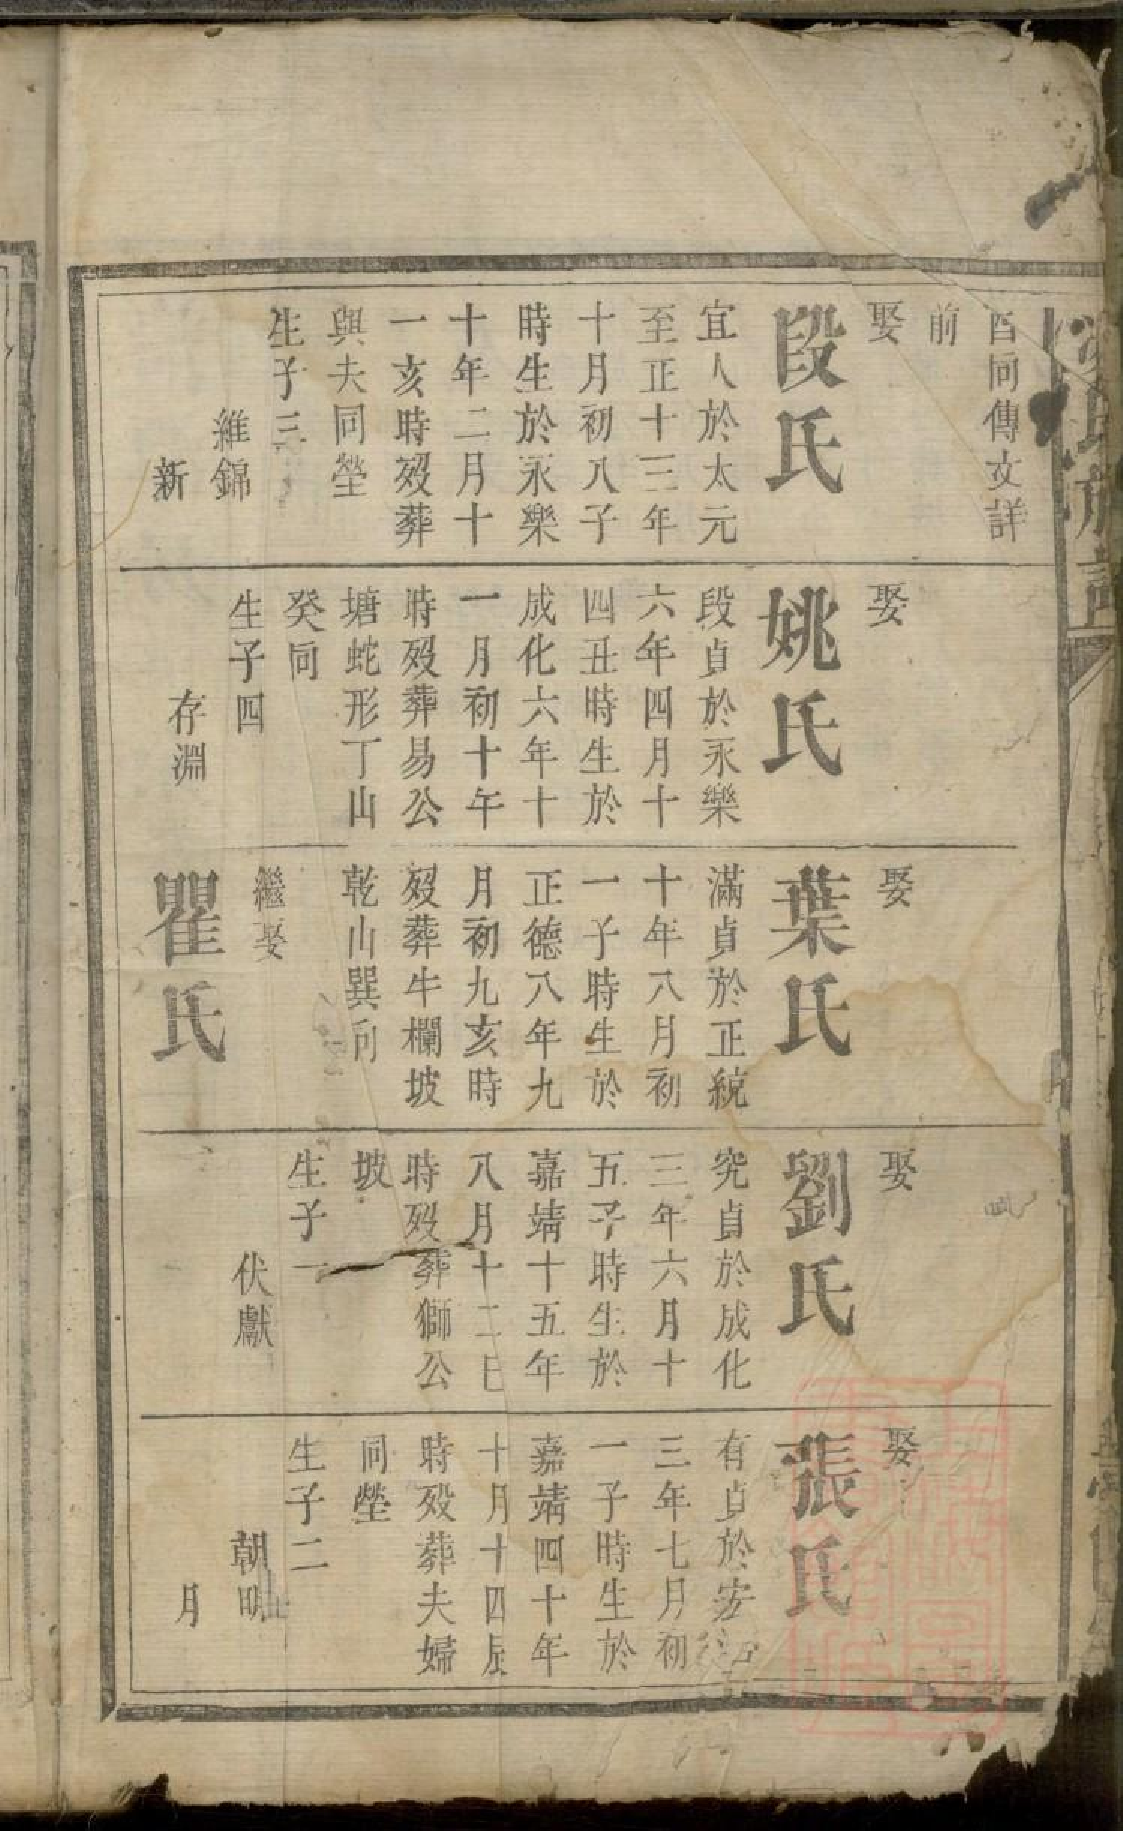 酉向傳文詳
前
娶
段氏
宜人於太元
至正十三年
十月初八子
時生於永樂
十年二月十
一亥時歿葬
與夫同塋
生子三
維錦
新
娶
姚氏
段貞於永樂
六年四月十
四丑時生於
成化六年十
一月初十午
時歿葬易公
塘蛇形丁山
癸向
生子四
存淵
娶
葉氏
滿貞於正統
十年八月初
一子時生於
正德八年九
月初九亥時
歿葬牛欄坡
乾山巽向
繼娶
瞿氏
娶
劉氏
究貞於成化
三年六月十
五子時生於
嘉靖十五年
八月十二巳
時歿葬獅公
坡
生子一
伏獻
娶
張氏
有貞於安
三年七月初
一子時生於
嘉靖四十年
十月十四辰
時歿葬夫婦
同塋
生子二
朝明
月